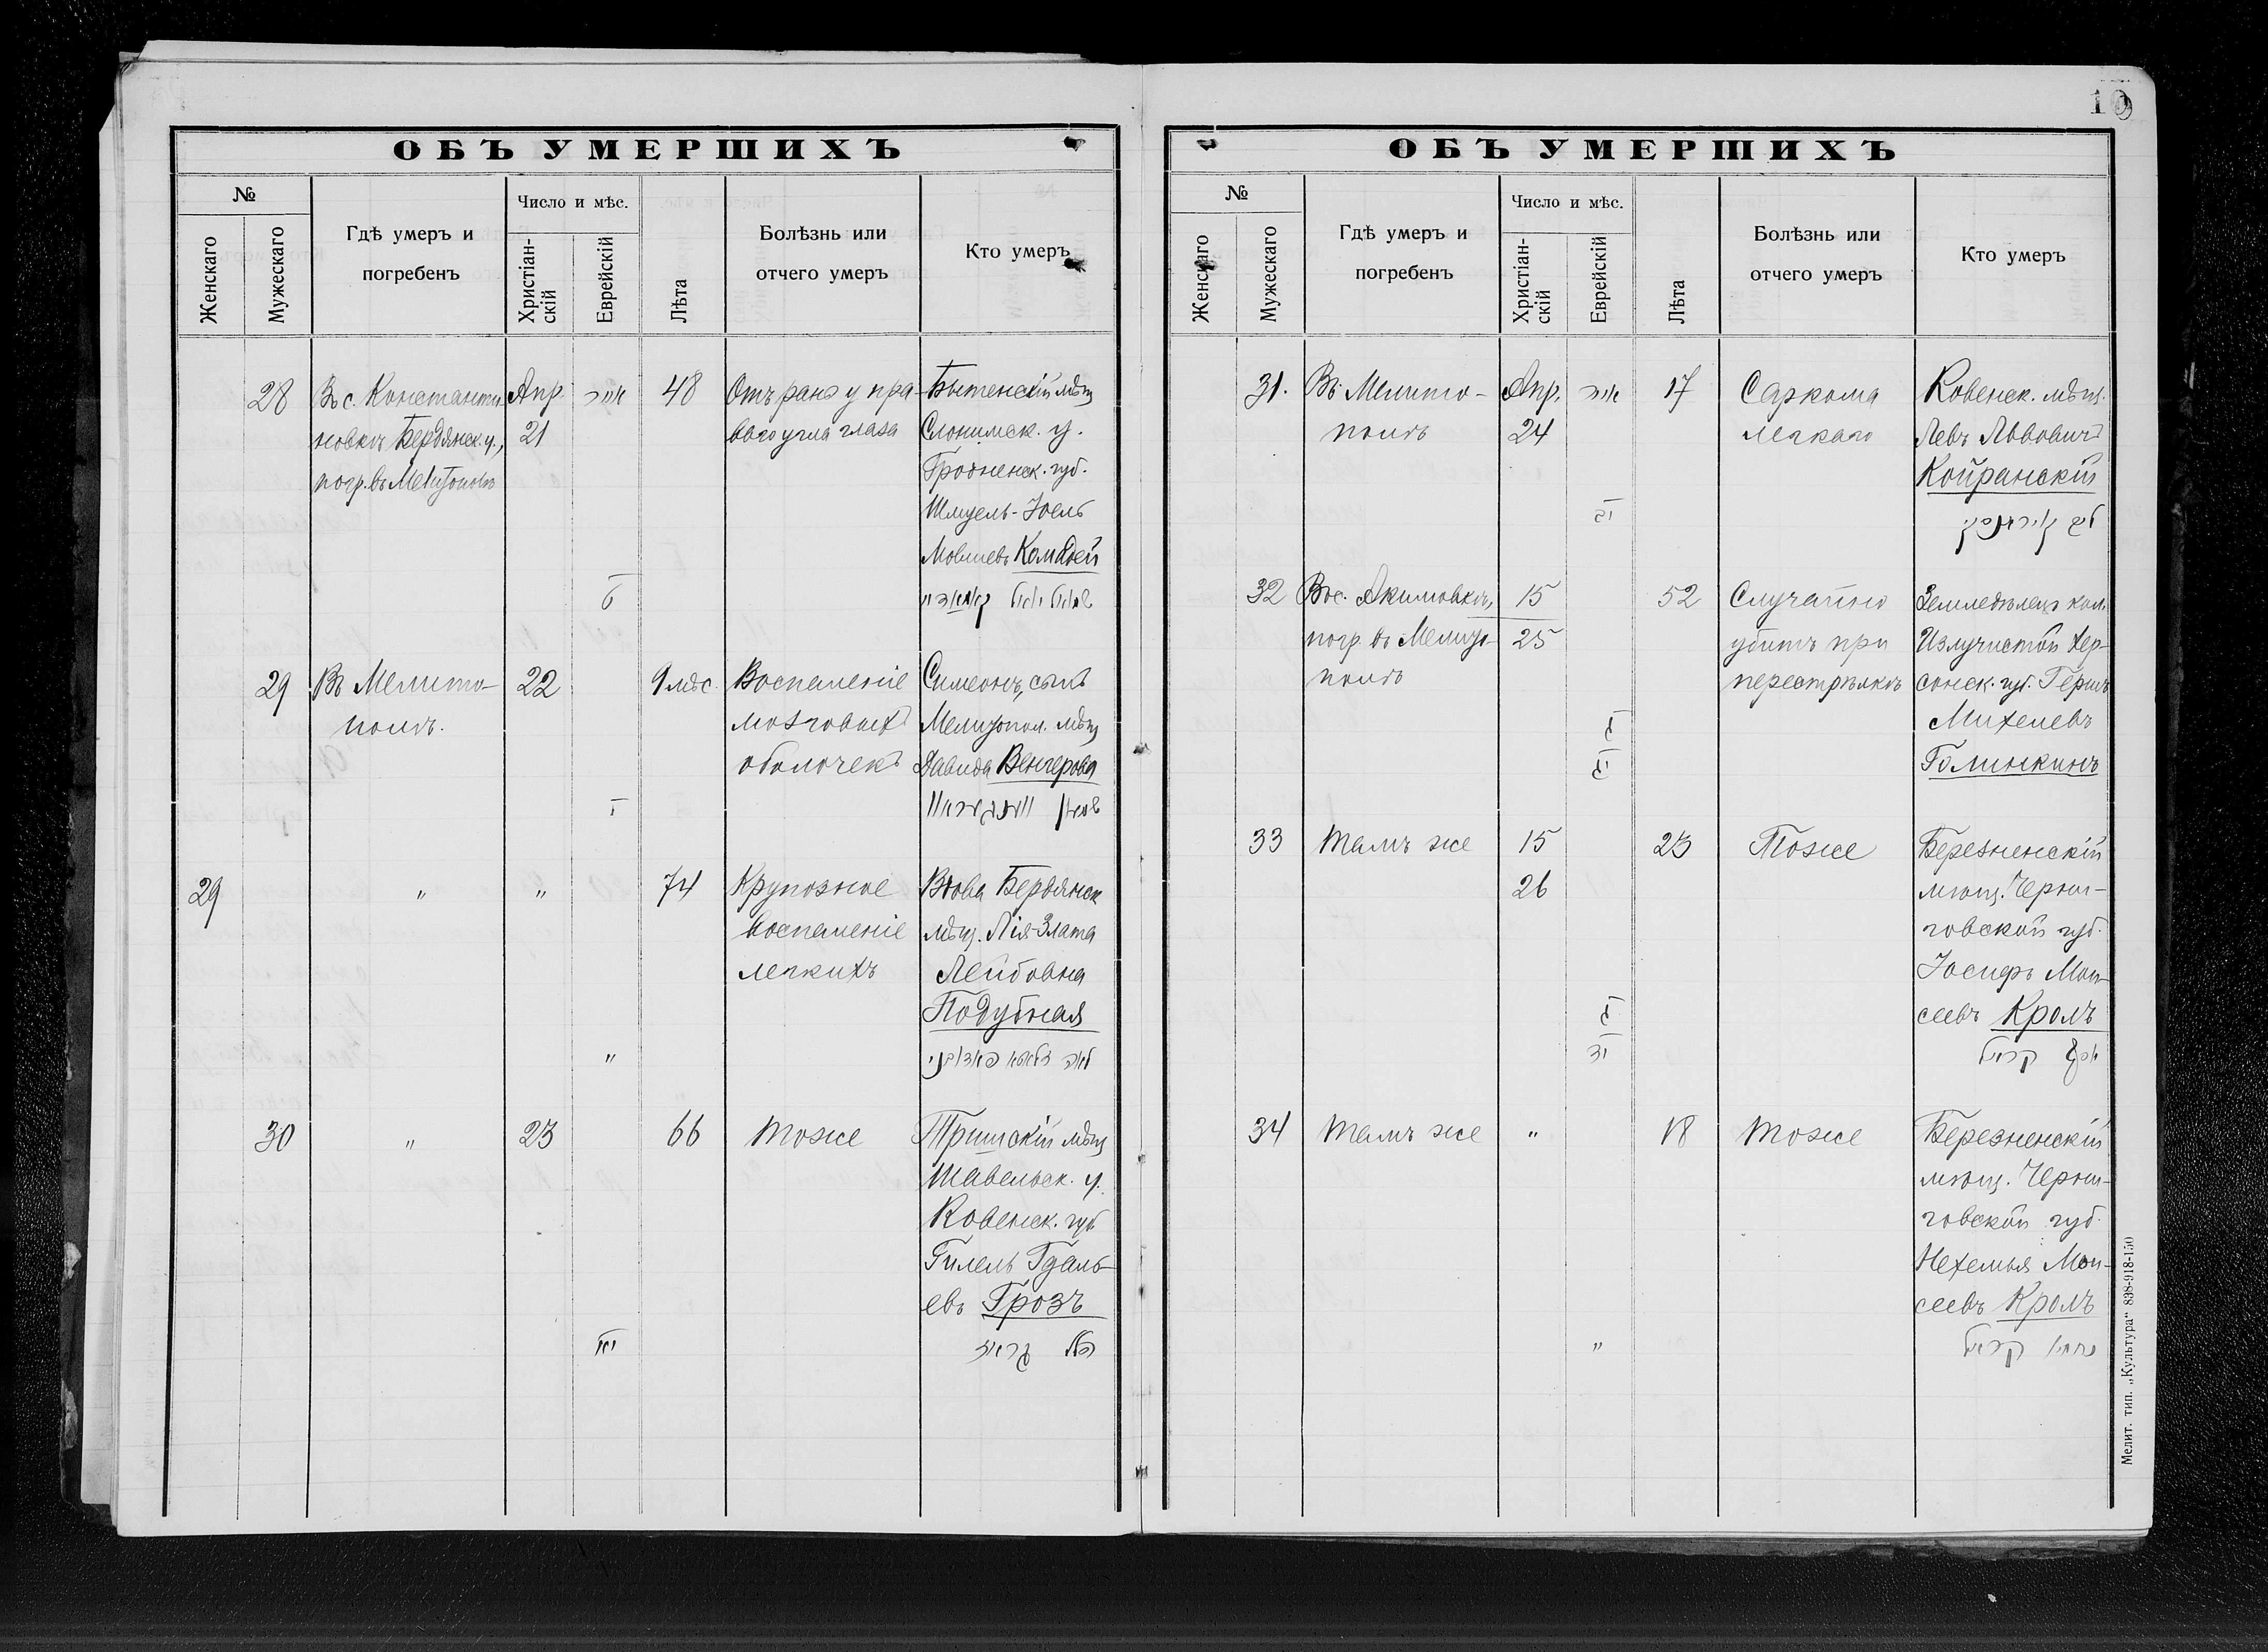 10
ОБЪ УМЕРШИХЪ
№
Женскаго
Мужескаго
Гдѣ умеръ и
погребенъ
Число и мѣс.
Христіан-
скій
Еврейскій
Лѣта
Болѣзнь или
отчего умеръ
Кто умеръ
28
Въ с. Константи-
новкѣ Бердянск. у.,
погр. въ Мелитополѣ
Апр.
21
אייר
ט
48
Отъ рана у пра-
ваго угла глаза
Бытенскій мѣщ.
Слонимск. у.
Гродненск. губ.
Шмуель-Іоель
Мовшевъ Комадей
שמואל יואל קאמאדיי
29
Въ Мелито-
полѣ.
22
י
9 мѣс.
Воспаленіе
мозговыхъ
оболочекъ
Симеонъ, сынъ
Мелитопол. мѣщ.
Давида Венгерова
שמעון ווענגעראוו
29
"
"
"
74
Крупозное
воспаленіе
легкихъ
Вдова Бердянск.
мѣщ. Лія-Злата
Лейбовна
Подубная
לאה זלאטא פאדובני
30
"
23
יא
66
Тоже
Тришскій мѣщ.
Шавельск. у.
Ковенск. губ.
Гилель Гдаль-
евъ Грозъ
הלל גראז
ОБЪ УМЕРШИХЪ
№
Женскаго
Мужескаго
Гдѣ умеръ и
погребенъ
Число и мѣс.
Христіан-
скій
Еврейскій
Лѣта
Болѣзнь или
отчего умеръ
Кто умеръ
31.
Въ Мелито-
полѣ
Апр.
24
אייר
יב
17
Саркома
легкаго
Ковенск. мѣщ.
Левъ Львовичъ
Койранскій
ליב קויראנסקי
32
Въ с. Акимовкѣ,
погр. въ Мелито-
полѣ
15
25
ג
יג
52
Случайно
убитъ при
перестрѣлкѣ
Земледѣлецъ кол.
Излучистой Хер-
сонск. губ. Гершъ
Михелевъ
Голинкинъ
33
Тамъ же
15
26
ג
יד
23
Тоже
Березненскій
мѣщ. Черни-
говской губ.
Іосифъ Мои-
сеевъ Кролъ
יוסף קרול
34
Тамъ же
"
"
18
Тоже
Березненскій
мѣщ. Черни-
говской губ.
Нехемья Мои-
сеевъ Кролъ
נחמי' קרול
Мелит. тип. „Культура“ 838-918-150